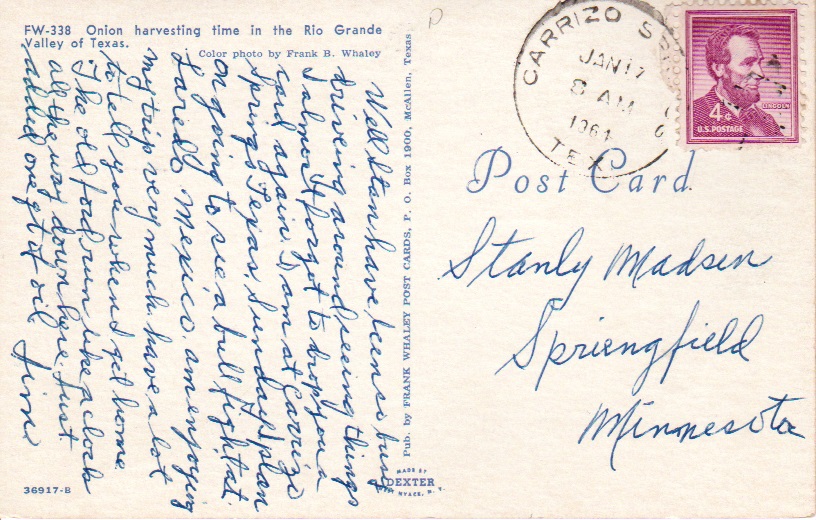 FW-338 Onion harvesting time in the Rio Grande
Valley of Texas.
Color photo by Frank B. Whaley
Well Stan have been so busy
driveing around seeing things
I almost forgot to drop you a
card again. I am at Carrizo
Springs Texas. Sunday I plan
on going to see a bull fight at
Laredo Mexico. am enjoying
my trip very much. have a lot
to tell you when I get home
The old ford run like a clock
all the way down here. Just
added one qt of oil Jim
36917-B
Pub. by FRANK WHALEY POST CARDS, P. O. Box 1900, McAllen, Texas
MADE BY
DEXTER
WEST NYACK, N. Y.
CARRIZO
JAN 17
8 AM
1961
TEX
4¢
LINCOLN
U.S. POSTAGE
Post Card
Stanly Madsen
Spriengfield
Minnesota